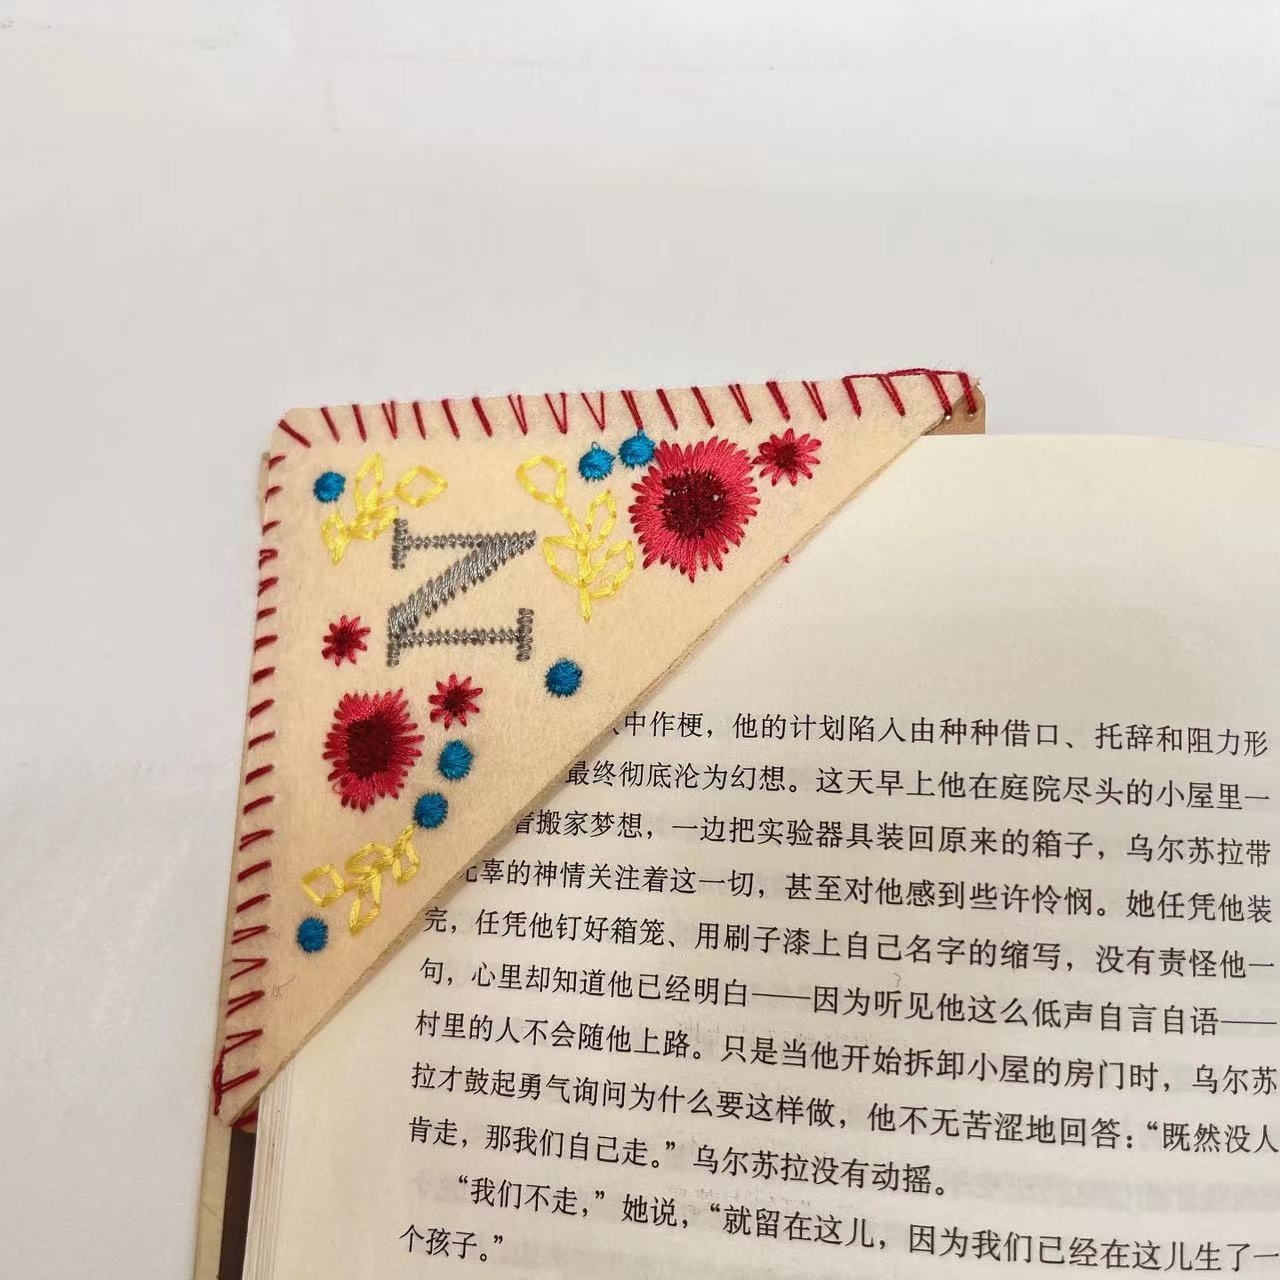 N
中作梗，他的计划陷入由种种借口、托辞和阻力形
最终彻底沦为幻想。这天早上他在庭院尽头的小屋里一
搬家梦想，一边把实验器具装回原来的箱子，乌尔苏拉带
辜的神情关注着这一切，甚至对他感到些许怜悯。她任凭他装
完，任凭他钉好箱笼、用刷子漆上自己名字的缩写，没有责怪他一
句，心里却知道他已经明白——因为听见他这么低声自言自语——
村里的人不会随他上路。只是当他开始拆卸小屋的房门时，乌尔苏
拉才鼓起勇气询问为什么要这样做，他不无苦涩地回答：“既然没人
肯走，那我们自己走。”乌尔苏拉没有动摇。
“我们不走，”她说，“就留在这儿，因为我们已经在这儿生了一
个孩子。”